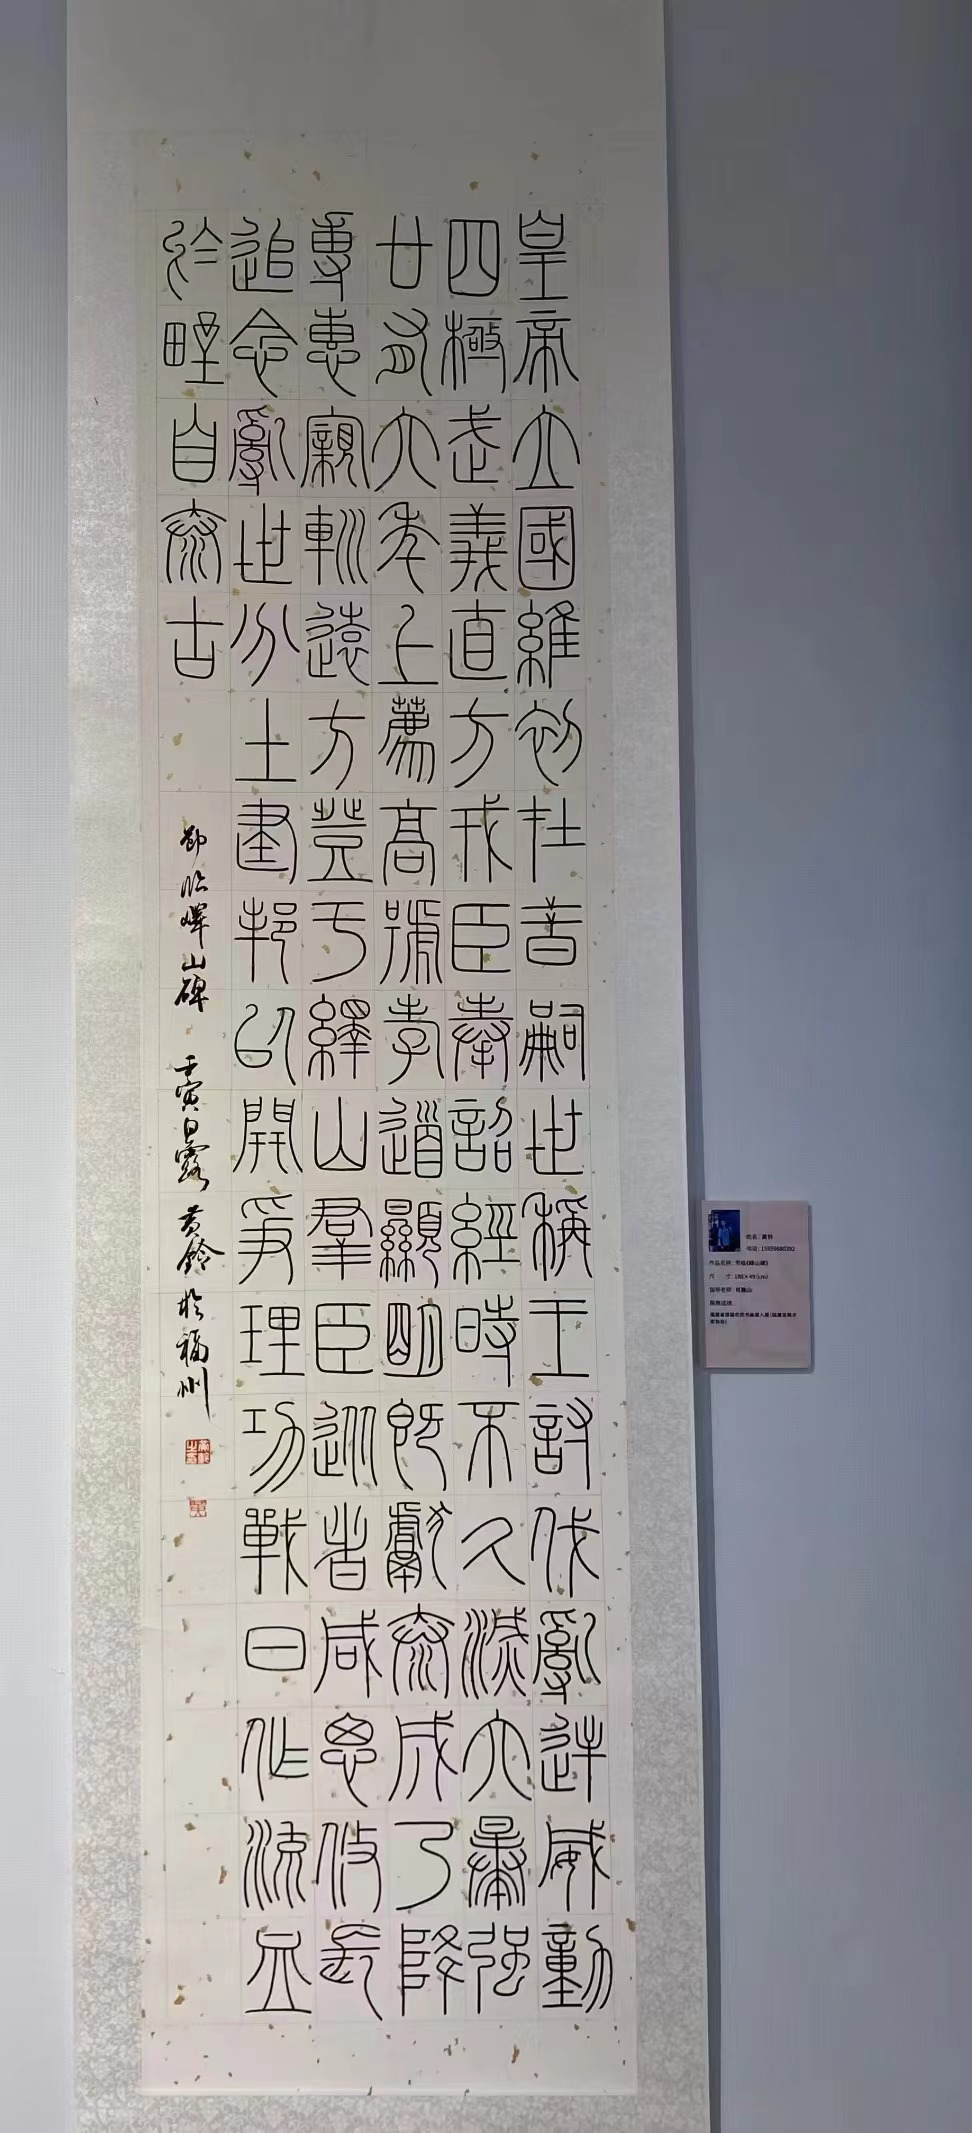 皇帝立國維初在昔嗣世稱王討伐亂逆威動
四極武義直方戎臣奉詔經時不久滅六暴強
廿有六年上薦高號孝道顯明既獻泰成乃降
專惠親䡅遠方登于繹山羣臣從者咸思攸長
追念亂世分土建邦以開爭理功戰日作流血
於野自泰古
節臨嶧山碑 壬寅白露 黃鈴於福州
姓名：黄铃
电话：15959680392
作品名称：节临《峄山碑》
尺 寸：180×49(cm)
指导老师：